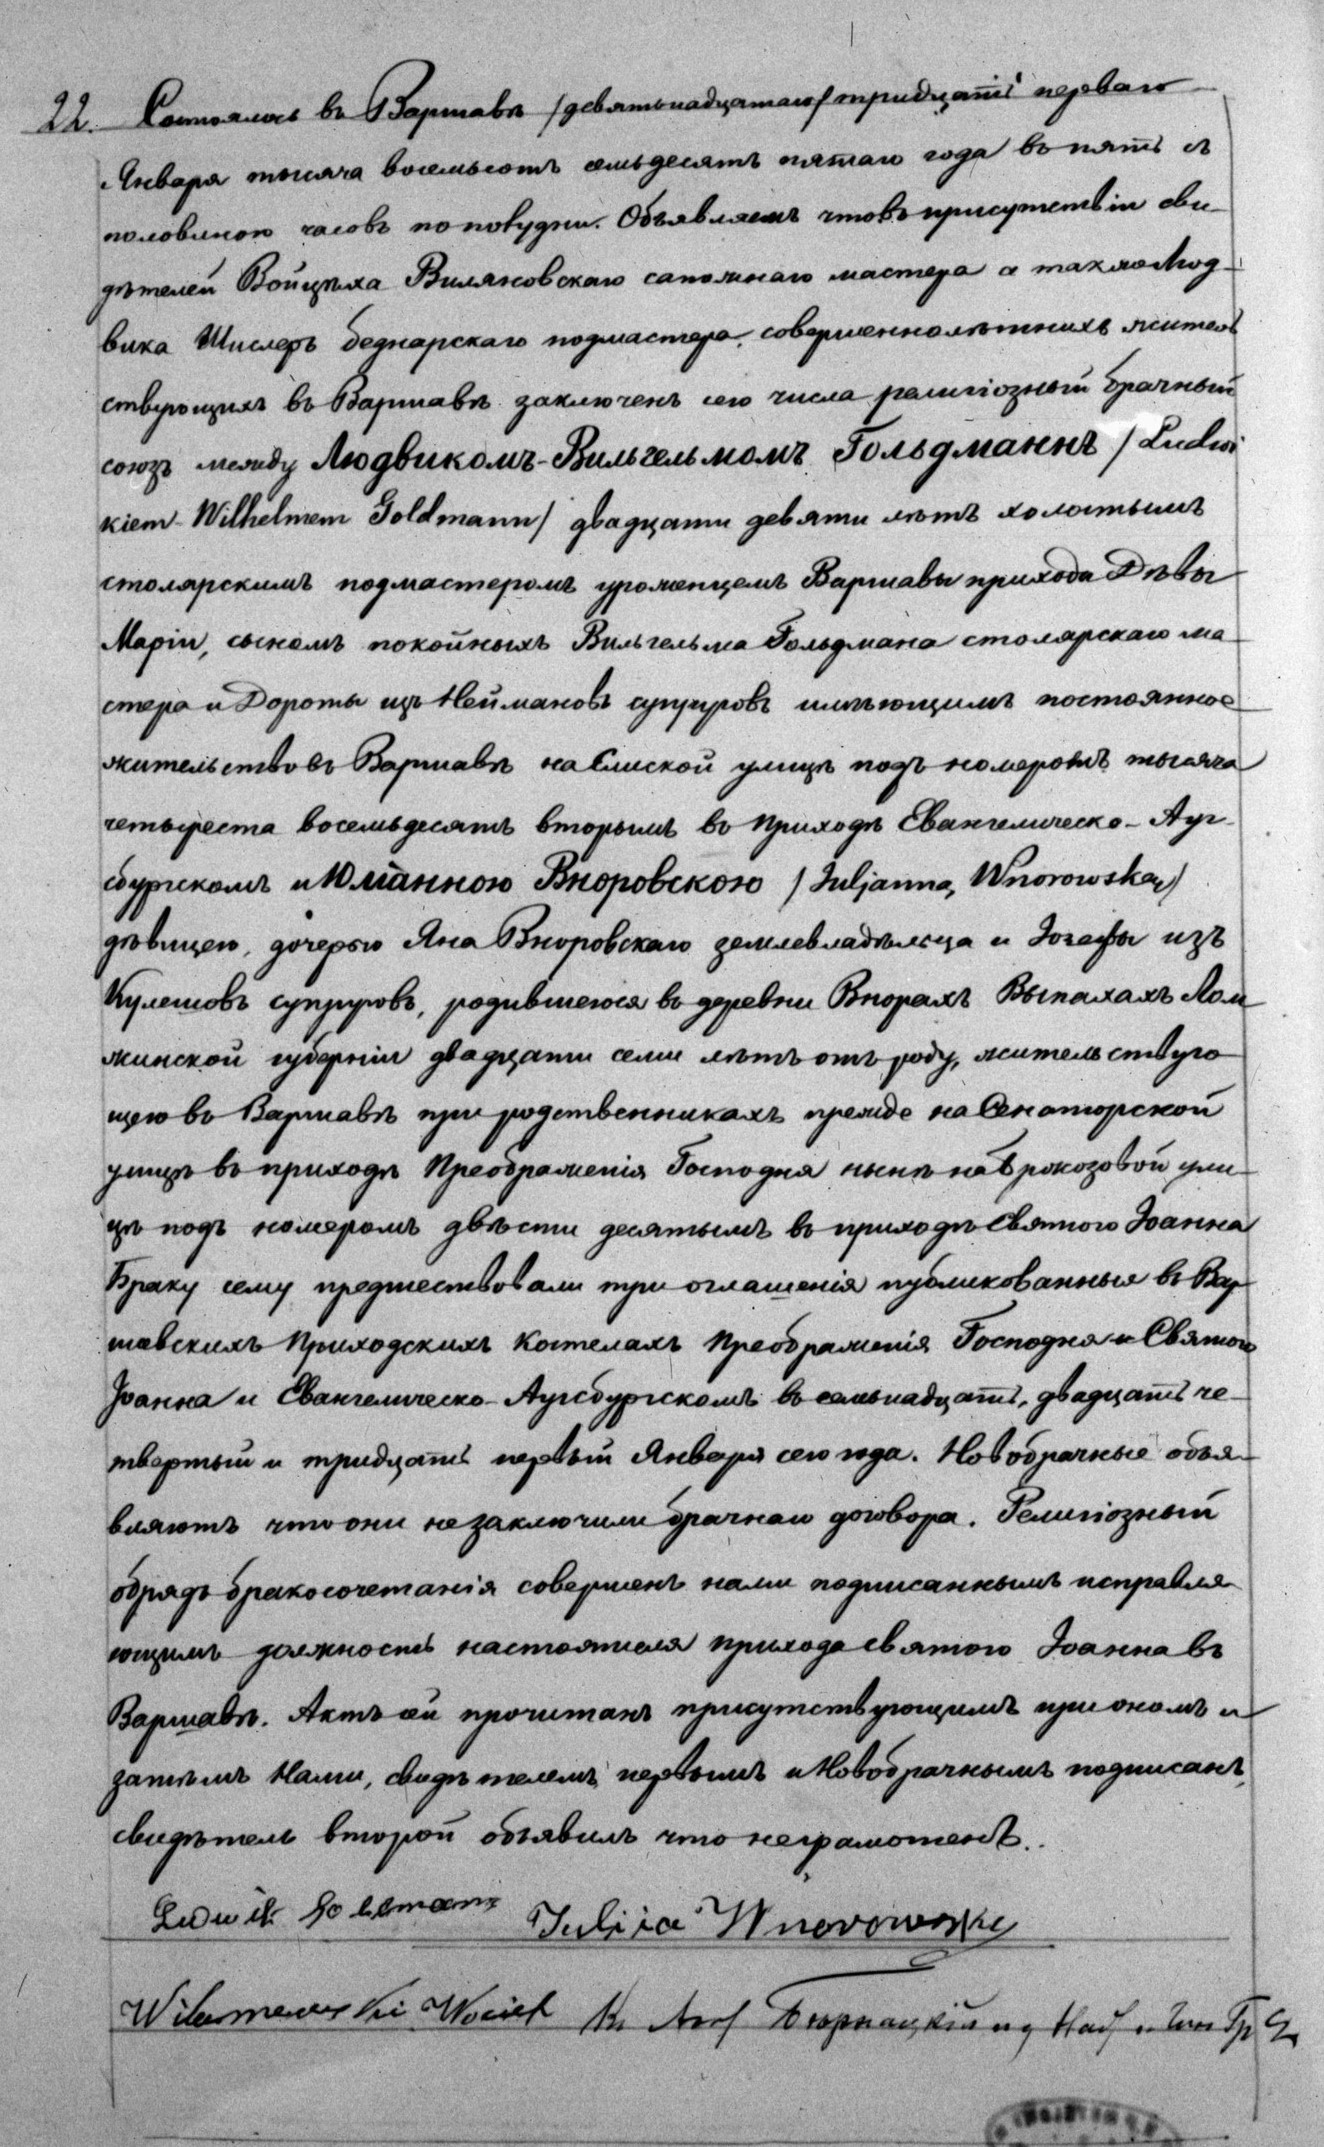 22. Состоялось въ Варшавѣ /девятьнадцатаго/ тридцать перваго
Января тысяча восемьсотъ семьдесятъ пятаго года въ пять съ
половиною часовъ по полудни. Объявляемъ что въ присутствіи сви-
дѣтелей Войцѣха сапожнаго мастера а также Люд-
вика Шислеръ беднарскаго подмастера, совершеннолѣтнихъ житель
ствующихъ въ Варшавѣ заключенъ сего числа религіозный брачный
союзъ между Людвикомъ-Вильгельмомъ Гольдманнъ / Ludwi
kiem Wilhelmem Goldmann/ двадцати девяти лѣтъ холостымъ
столярскимъ подмастеромъ уроженцемъ Варшавы прихода Дѣвы
Маріи, сыномъ покойныхъ Вильгельма Гольдмана столярскаго ма-
стера и Дороты изъ Неймановъ супруговъ имѣющимъ постоянное
жительство въ Варшавѣ на улицѣ подъ номеромъ тысяча
четыреста восемьдесятъ вторымъ въ приходѣ Евангелическо-Ауг-
сбургскомъ и Юліанною Вноровскою / Juljanną Wnorowską/
дѣвицею, дочерью Яна Вноровскаго землевладѣльца и Іозефы изъ
Кулешовъ супруговъ, родившеюся въ деревни Внорахъ Выпахахъ Лом
жинской губерніи двадцати семи лѣтъ отъ роду, жительствую-
щею въ Варшавѣ при родственникахъ прежде на Сенаторской
улицѣ въ приходѣ Преображенія Господня нынѣ на ули-
цѣ подъ номеромъ двѣсти десятымъ въ приходѣ Святого Іоанна
Браку сему предшествовали три оглашенія публикованныя въ Вар
шавскихъ Приходскихъ Костелахъ Преображенія Господня и Святого
Іоанна и Евангелическо-Аугсбургскомъ въ семьнадцатый, двадцать че-
твертый и тридцать первый Января сего года. Новобрачные объя-
вляютъ что они не заключили брачнаго договора. Религіозный
обрядъ бракосочетанія совершенъ нами подписаннымъ исправля-
ющимъ должность настоятеля прихода святого Іоанна въ
Варшавѣ. Актъ сей прочитанъ присутствующимъ при ономъ и
затѣмъ Нами, свидѣтелемъ первымъ и Новобрачнымъ подписанъ,
свидѣтель второй объявилъ что неграмотенъ.
Ludwik Goldmann Julija Wnorowska